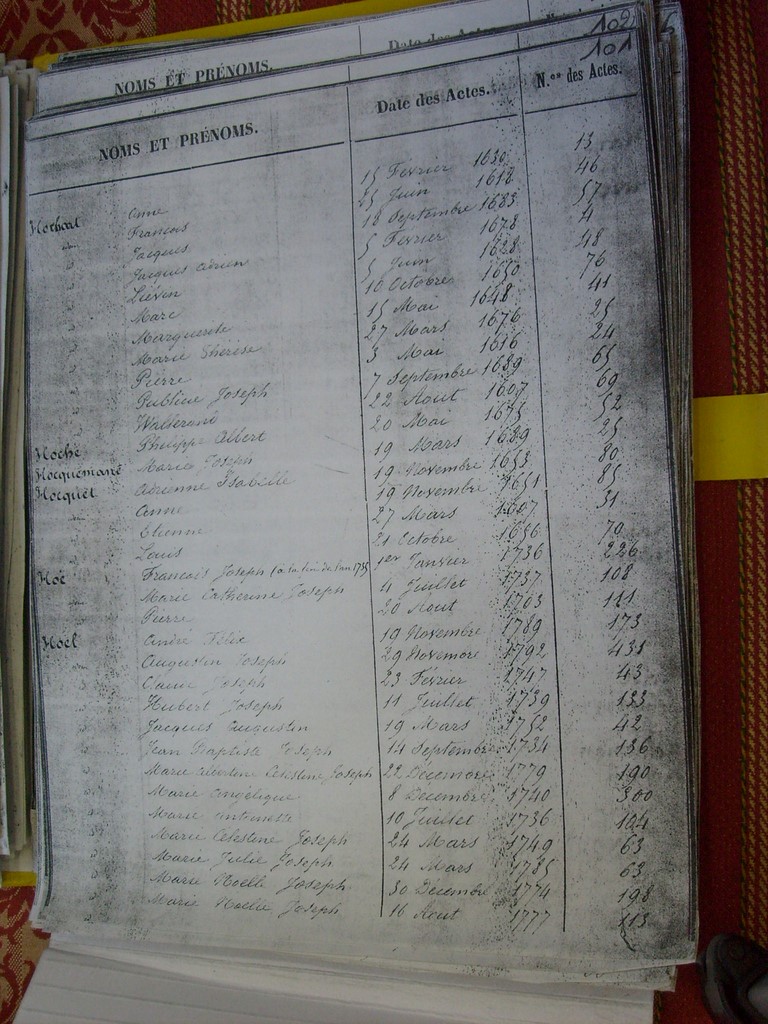 102
NOMS ET PRÉNOMS. Date des Actes.
101
NOMS ET PRÉNOMS. Date des Actes. N.os des Actes.
Hochart Anne 15 Février 1630 13
" François 25 Juin 1618 46
" Jacques 18 Septembre 1683 57
" Jacques Adrien 5 Février 1678 4
" Liévin 5 Juin 1628 48
" Marc 10 Octobre 1650 76
" Marguerite 15 Mai 1648 41
" Marie Thérèse 27 Mars 1676 25
" Pierre 3 Mai 1616 24
" Joseph 7 Septembre 1689 65
" 22 Aout 1607 69
Hoché Philippe Albert 20 Mai 1675 52
Hocquemane Marie Joseph 19 Mars 1689 25
Hocquet Adrienne Isabelle 19 Novembre 1653 80
" Anne 19 Novembre 1651 85
" Etienne 27 Mars 1607 31
" Louis 21 Octobre 1656 70
Hoé François Joseph (à la fin de l'an 1735 1er Janvier 1736 226
" Marie Catherine Joseph 4 Juillet 1737 108
" Pierre 20 Aout 1703 111
Hoel André Félix 19 Novembre 1789 173
" Augustin Joseph 29 Novembre 1792 431
" Claire Joseph 23 Février 1747 43
" Hubert Joseph 11 Juillet 1739 133
" Jacques Augustin 19 Mars 1752 42
" Jean Baptiste Joseph 14 Septembre 1734 136
" Marie Albertine Celestine Joseph 22 Décembre 1779 190
" Marie Angélique 8 Décembre 1740 300
" Marie Antoinette 10 Juillet 1736 104
" Marie Célestine Joseph 24 Mars 1749 63
" Marie Julie Joseph 24 Mars 1785 63
" Marie Noelle Joseph 30 Décembre 1774 198
" Marie Noelle Joseph 16 Aout 1777 113